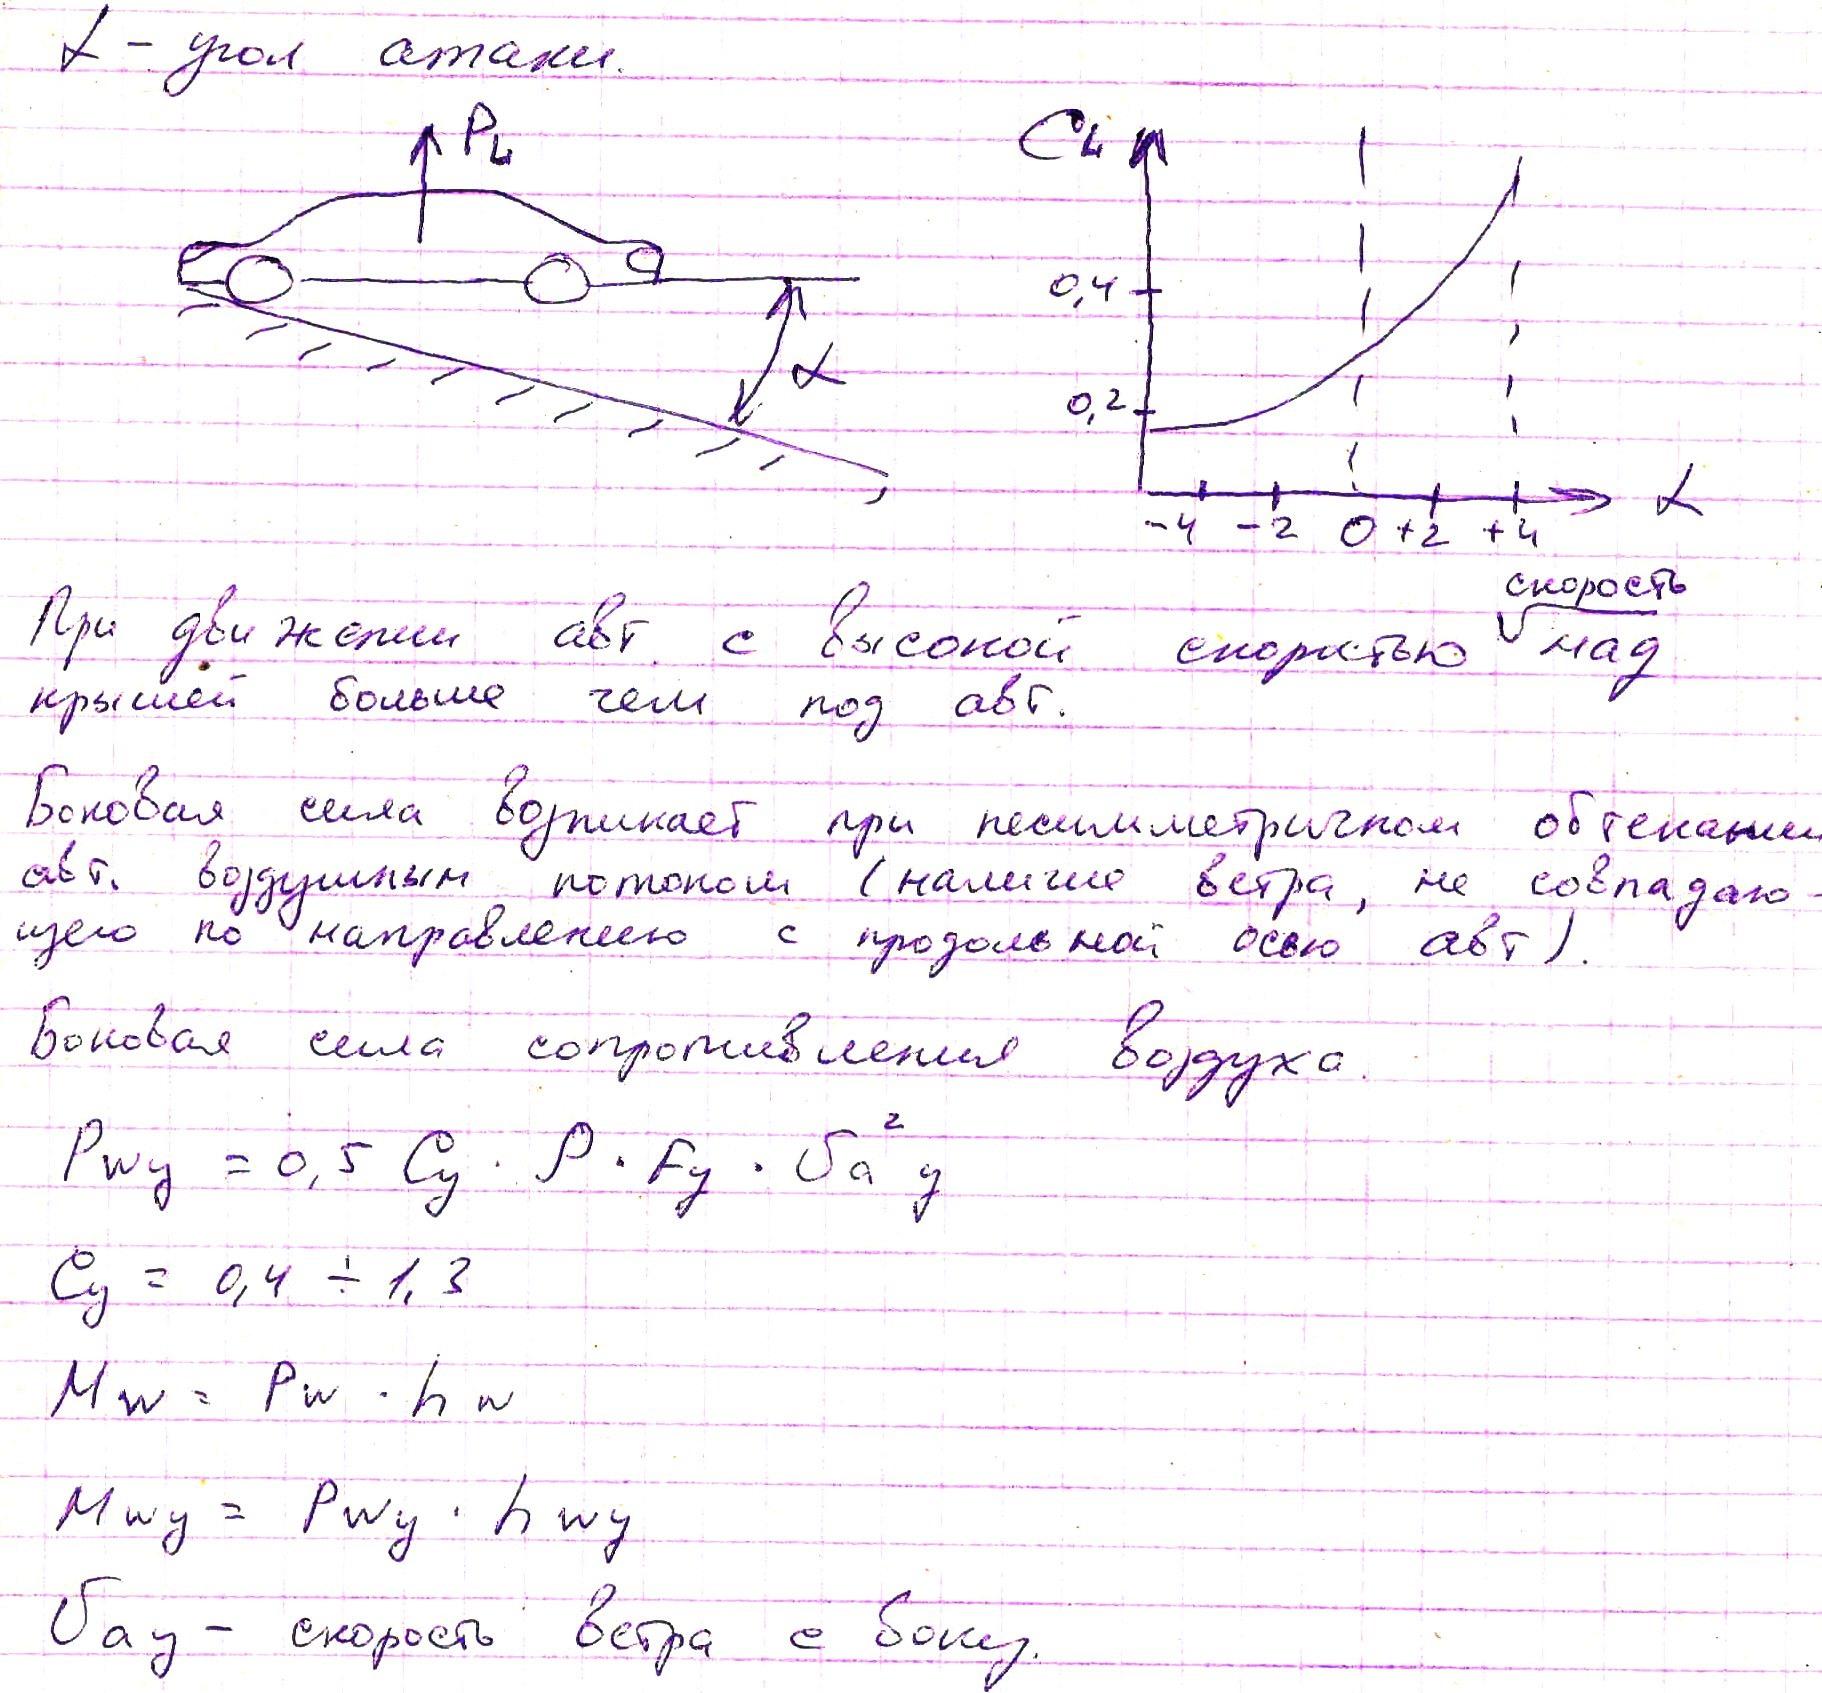 α - угол атаки.
PL
α
CL
0,4
0,2
-4 -2 0 +2 +4
α
скорость
При движении авт. с высокой скоростью √ над
крышей больше чем под авт.
Боковая сила возникает при несимметричном обтекании
авт. воздушным потоком (наличие ветра, не совпадаю-
щего по направлению с продольной осью авт).
Боковая сила сопротивления воздуха.
Pwy = 0,5 Cy · ρ · Fy · υa² y
Cy = 0,4 ÷ 1,3
Mw = Pw · hw
Mwy = Pwy · hwy
υay - скорость ветра с боку.